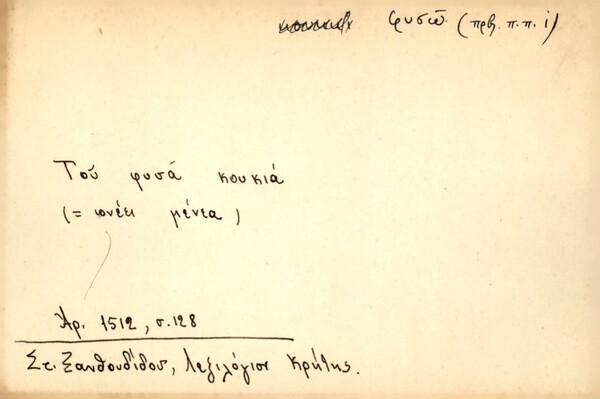 φυσῶ (πρβ. π. π. ι)
Τοῦ φυσά κουκιά
(= πνέει μένεα)
Ἀρ. 1512, σ. 128
Στ. Ξανθουδίδου, Λεξιλόγιον Κρήτης.